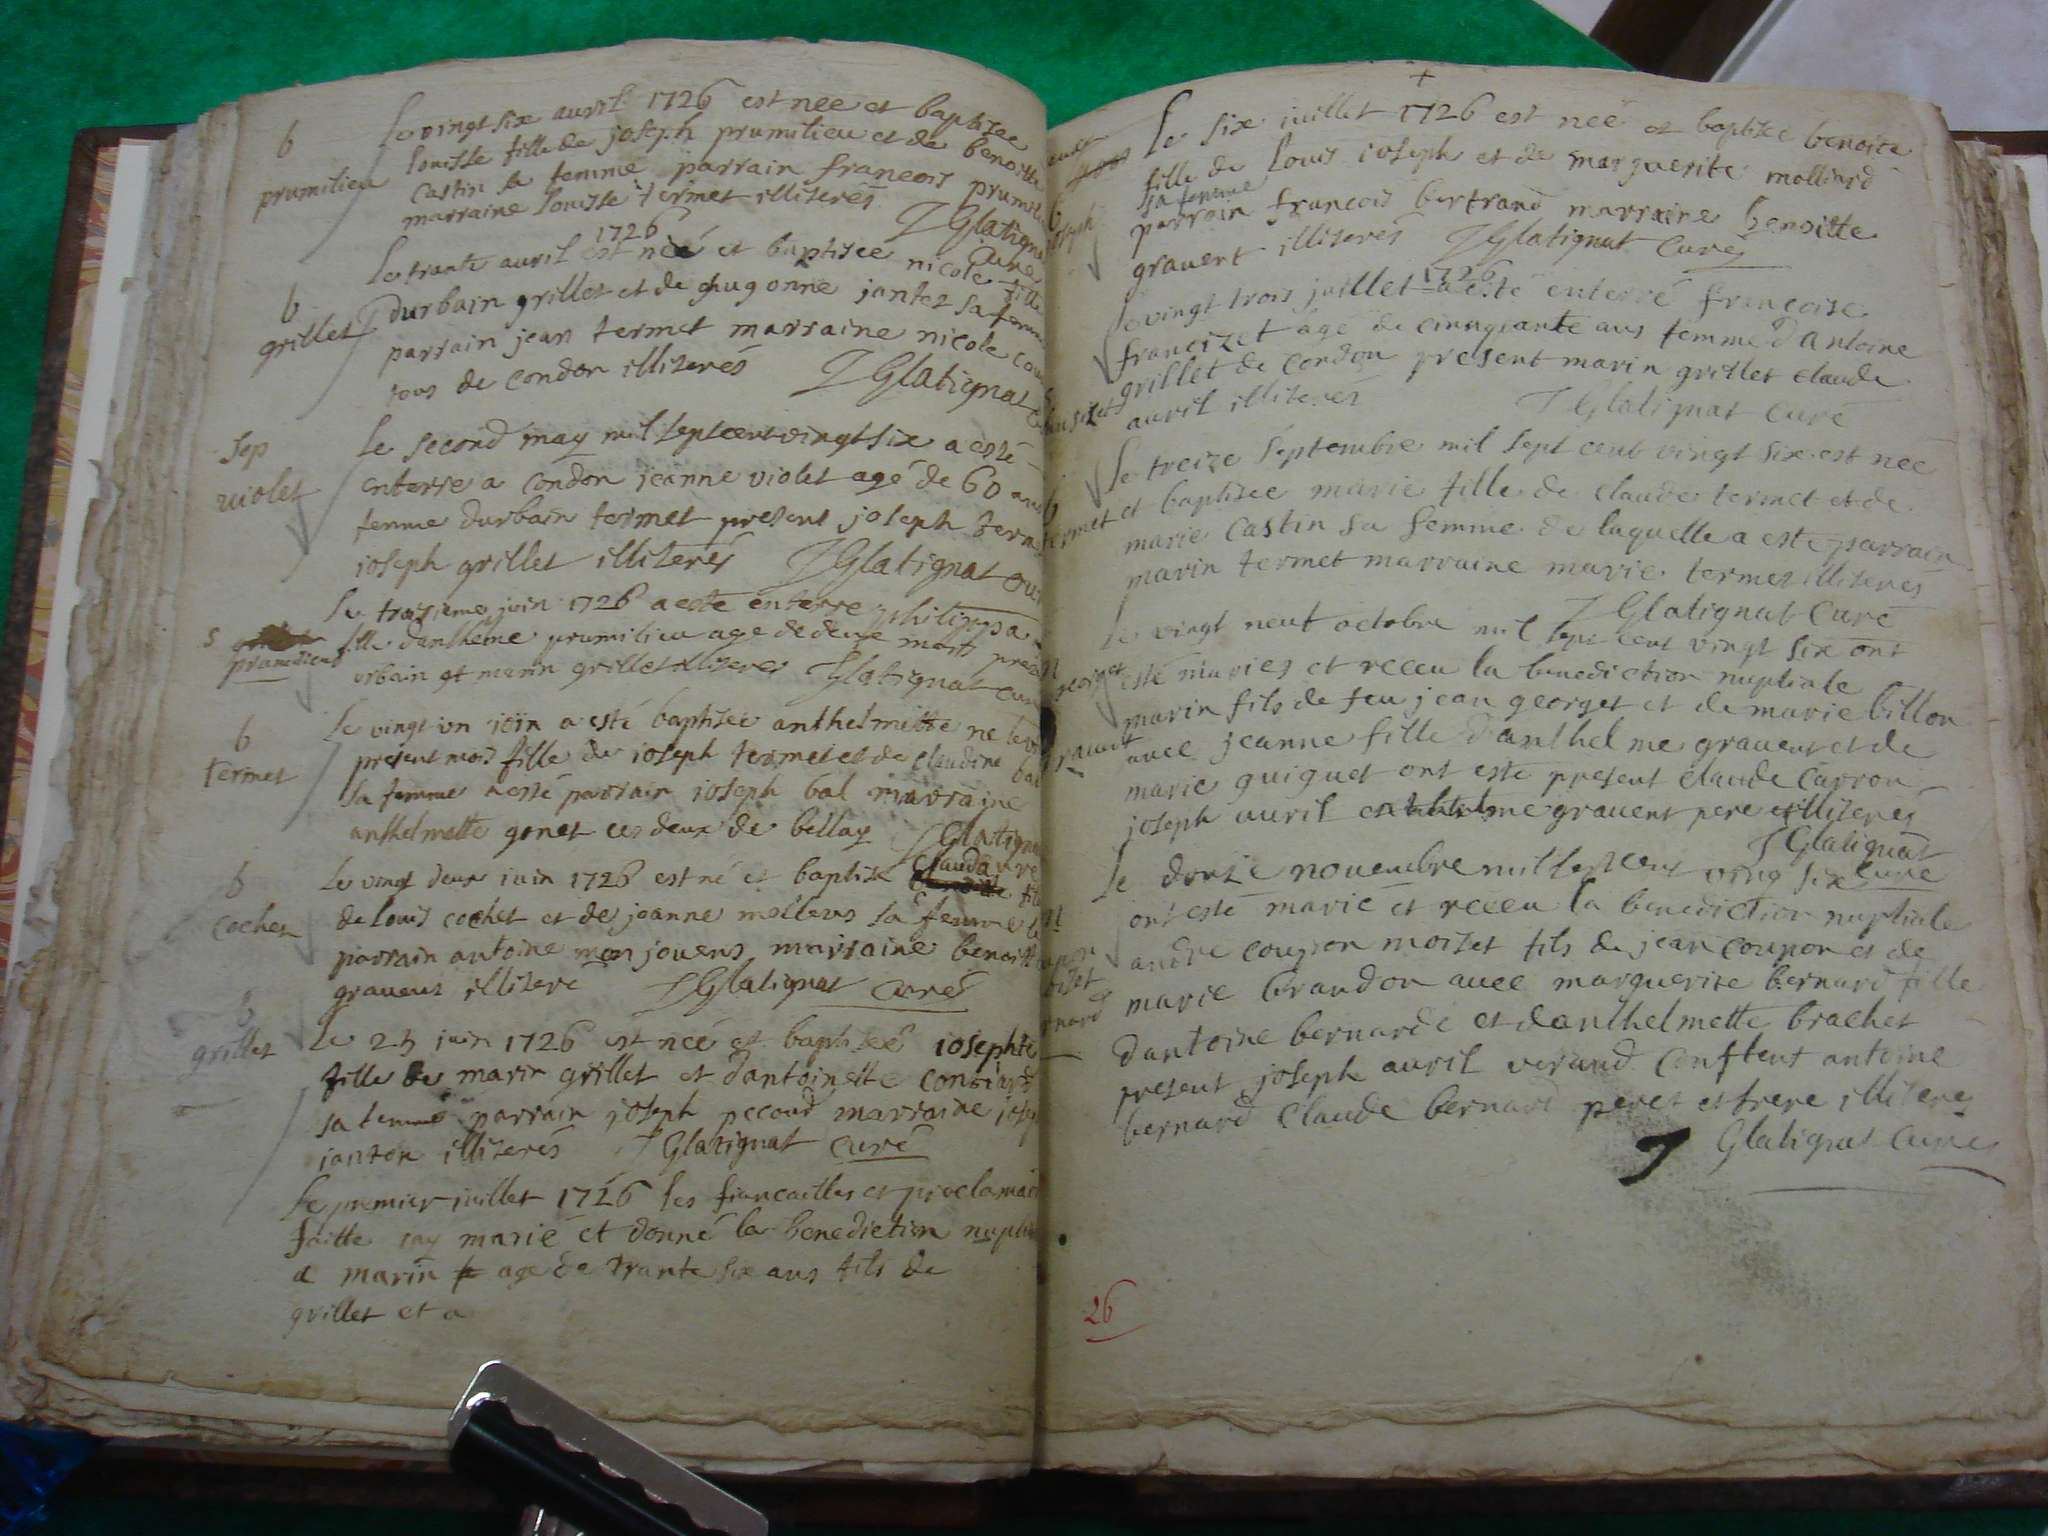 b
prumilieu
le vingt six avril 1726 est nee et baptisee
louisse fille de joseph prumilieu et de benoitte
castin sa femme parrain francois prumili
marraine louisse termet illiterés
J Glatigna
cure
b
grillet
1726
le trante avril est neé et baptisee nicole fille
durbain grillet et de hugonne jantet sa femme
parrain jean termet marraine nicole
tous de condon illiterés J Glatignat
sep
violet
le second may mil sept cent vingt six a esté
enterre a condon jeanne violet agé de 60 ans
femme durbain termet present joseph term
joseph grillet illiterés J Glatignat cur
s
prumilieu
le troisieme juin 1726 a este enterre philippa
fille danthelme prumilieu age de deux mois pres
urbain et marin grillet illiteres J Glatignat cur
b
termet
le vingt un join a esté baptisee anthelmette ne le
present mois fille de joseph termet et de claudine bal
sa femme a esté parrain joseph bal marraine
anthelmette gonet ces deux de bellay J Glatigna
cure
b
cochet
le vingt deux juin 1726 est né et baptisé clauda fil
de louis cochet et de jeanne mollens sa femme
parrain antoine monjouens marraine benoitt
gravent illiteré J Glatignat curé
b
grillet
le 25 juin 1726 est neé et baptiseé josephte
fille de marin grillet et dantoinette
sa femme parrain joseph pecoud marraine josep
janton illiterés J Glatignat curé
le premier juillet 1726 les fiancailles et proclamat
faitte jay marié et donné la benediction nuptia
a marin age de trante six ans fils de
grillet et a
+
joseph
le six juillet 1726 est neé et baptisée benoite
fille de louis joseph et de marguerite molliard
sa femme
parrain francois bertrand marraine benoitte
gravent illiterés J Glatignat curé
1726
le vingt trois juillet a esté enterré francoise
francizet agé de cinquante ans femme d antoine
grillet de condon present marin grillet claude
avril illiterés J Glatignat curé
b
termet
le treize septembre mil sept cent vingt six est neé
et baptisee marie fille de claude termet et de
marie castin sa femme de laquelle a este parrain
marin termet marraine marie termet illiterés
J Glatignat curé
georget
gravent
le vingt neuf octobre mil sept cent vingt six ont
esté mariés et receu la benediction nuptiale
marin fils de feu jean georget et de marie billon
avec jeanne fille danthelme gravent et de
marie guiguet ont esté present claude carron
joseph avril anthelme gravent pere illiteres
J Glatignat
curé
le douze novembre mil sept cent ving six
ont esté marié et receu la benediction nuptiale
andre coupon moizet fils de jean coupon et de
marie brandon avec marguerite bernard fille
dantoine bernard et danthelmette brachet
present joseph avril verand constent antoine
bernard claude bernard peres et frere illiteres
J Glatignat curé
26